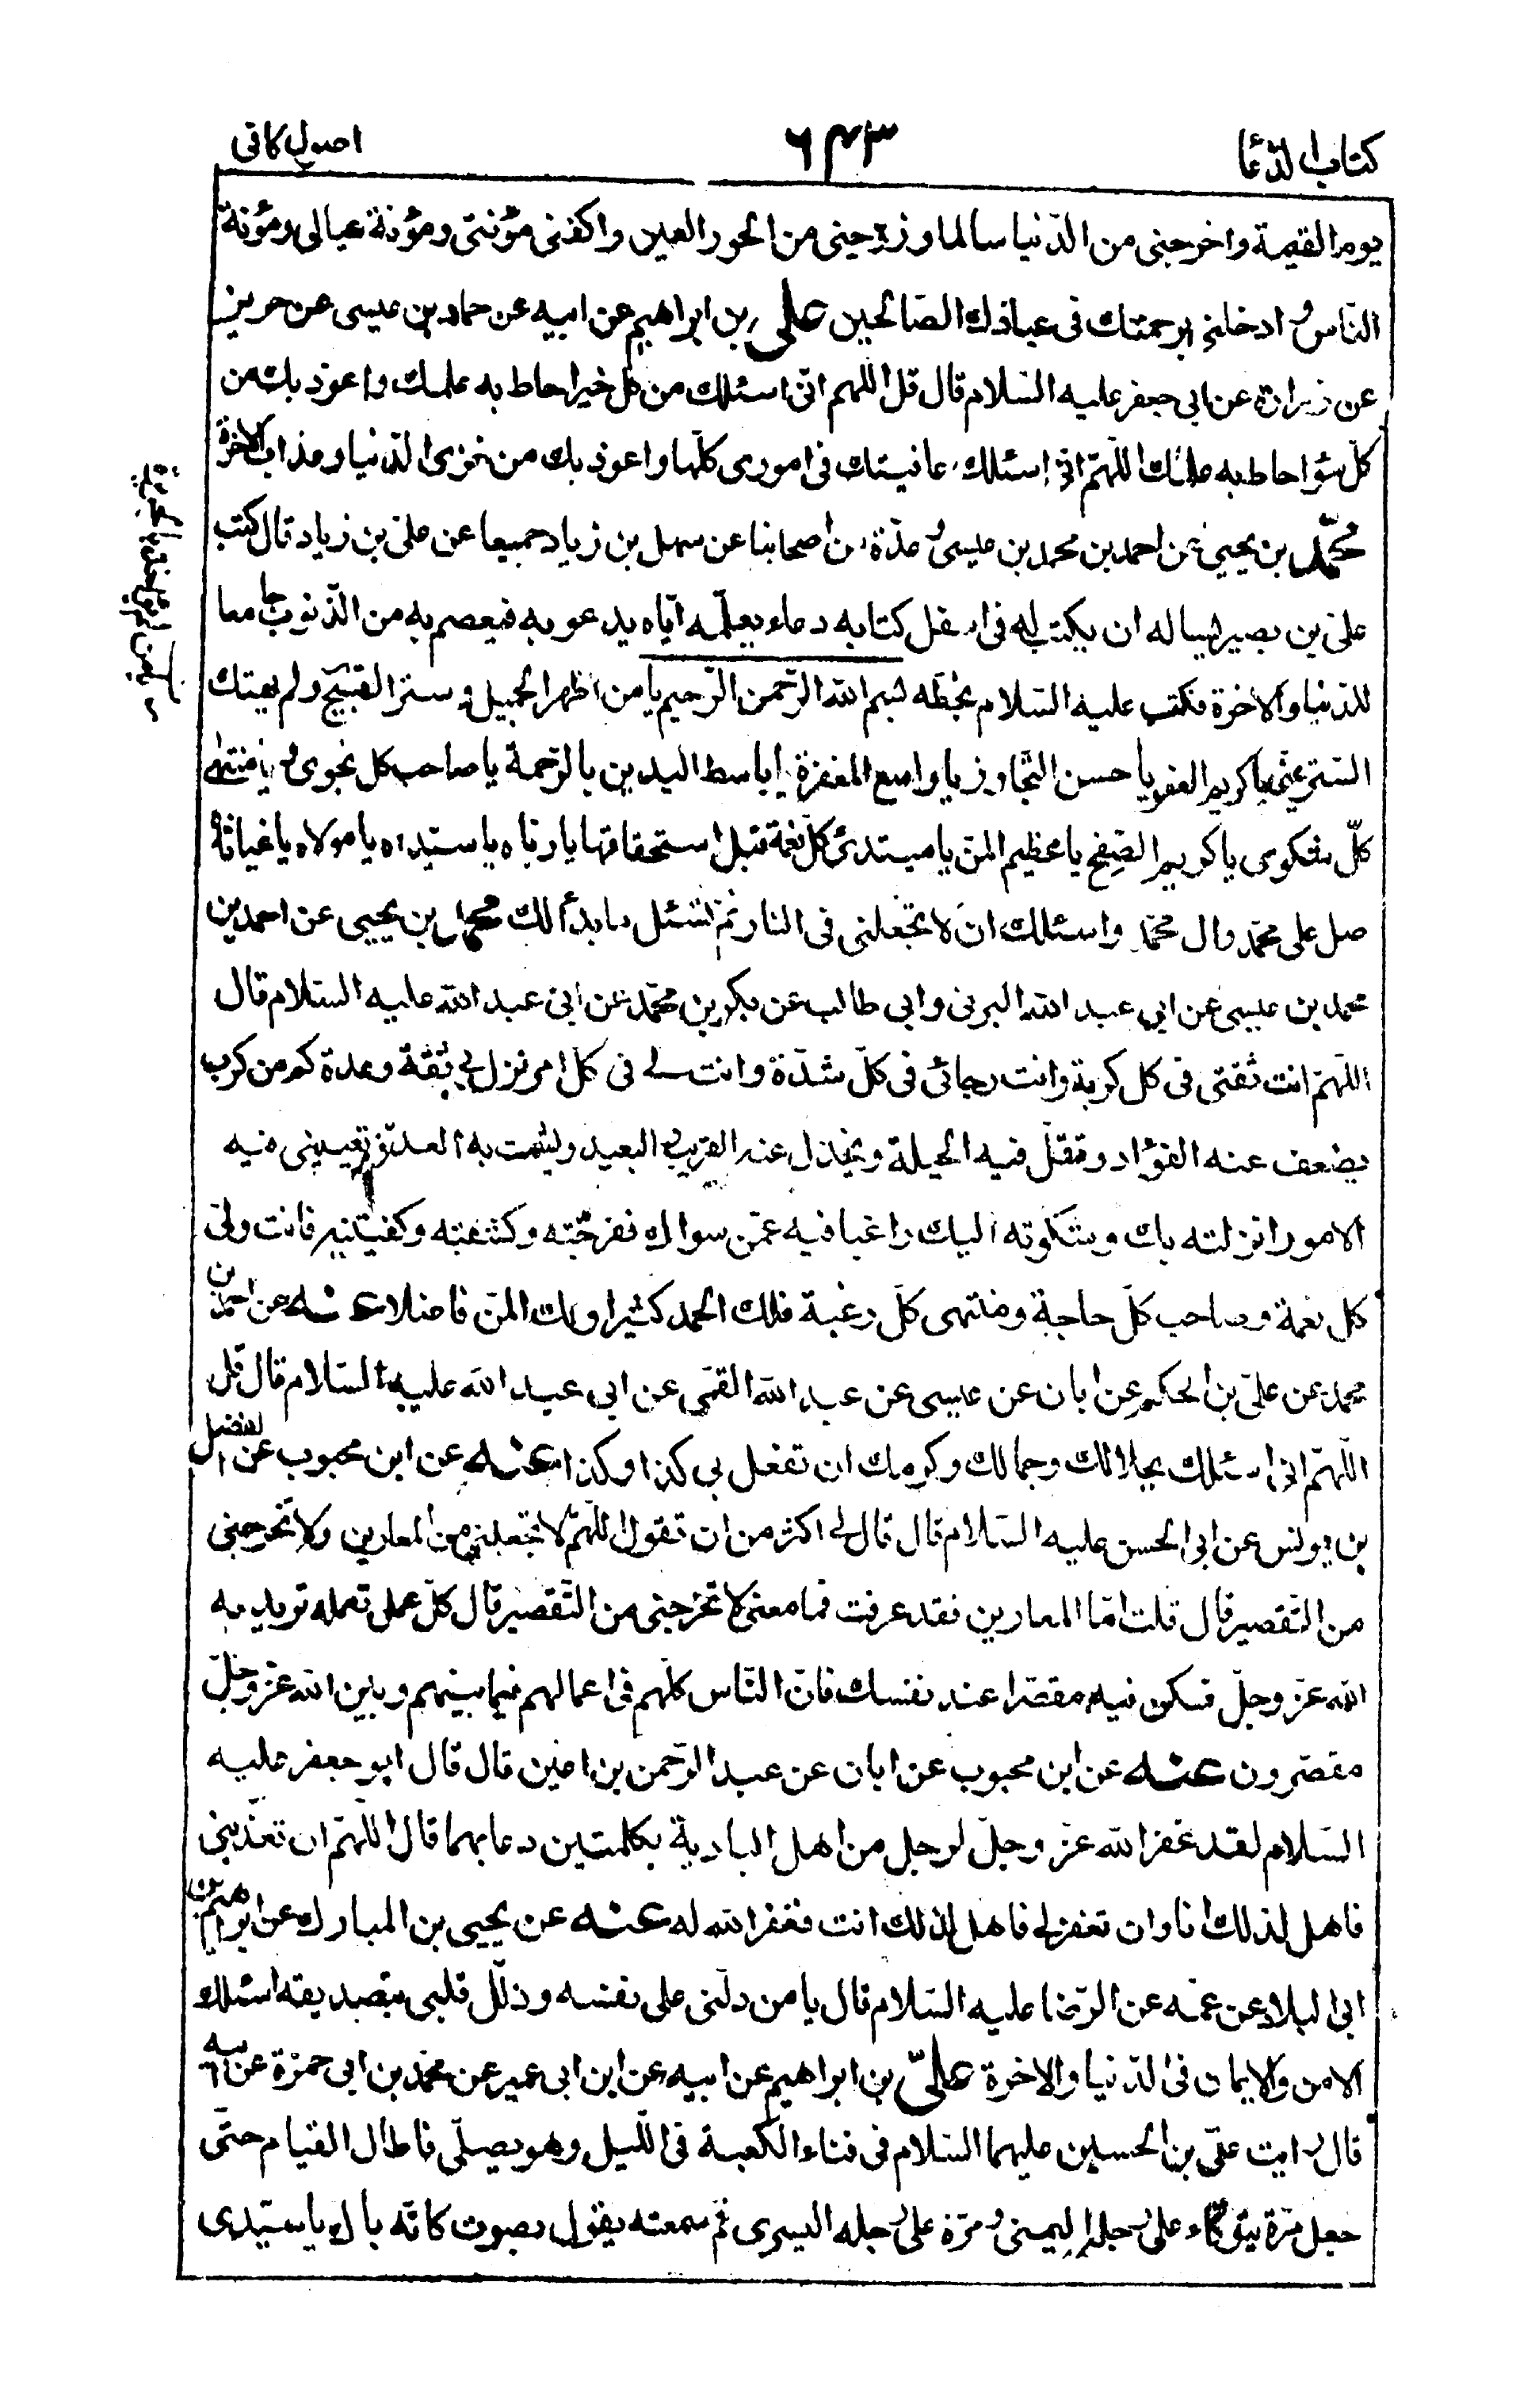 كتاب الدعا
٦٤٣
اصول كافى
يوم القيمة واخرجنى من الدّنيا سالما وزوّجنى من الحور العين واكفنى مؤنتى ومؤنة عيالى ومؤنة
النّاس وادخلنى برحمتك فى عبادك الصّالحين علىّ بن ابراهيم عن ابيه عن حماد بن عيسى عن حريز
عن زرارة عن ابى جعفر عليه السّلام قال قل اللهم انّى اسئلك من كل خير احاط به علمك واعوذ بك من
كلّ سؤ احاط به علمك اللّهمّ انّى اسئلك عافيتك فى امورى كلّها واعوذ بك من خزى الدّنيا وعذاب الاخرة
محمّد بن يحيى عن احمد بن محمد بن عيسى وعدّة من اصحابنا عن سهل بن زياد جميعا عن علىّ بن زياد قال كتب
علىّ بن بصير يساله ان يكتب له فى اسفل كتابه دعاء يعلّمه ايّاه يدعو به فيعصم به من الذّنوب جامعا
للدّنيا والاخرة فكتب عليه السّلام بخطّه بسم الله الرّحمن الرّحيم يا من اظهر الجميل وستر القبيح ولم يهتك
السّتر عنّى يا كريم العفو يا حسن التّجاوز يا واسع المغفرة يا باسط اليدين بالرّحمة يا صاحب كل نجوى ويا منتهى
كلّ شكوى يا كريم الصّفح يا عظيم المنّ يا مبتدئ كلّ نعمة قبل استحقاقها يا ربّاه يا سيّداه يا مولاه يا غياثاه
صل على محمّد وال محمّد واسئلك ان لا تجعلنى فى النار ثمّ تسئل ما بدأ لك محمد بن يحيى عن احمد بن
محمد بن عيسى عن ابى عبد الله البرقى وابى طالب عن بكر بن محمّد عن ابى عبد الله عليه السّلام قال
اللّهمّ انت ثقتى فى كل كربة وانت رجائى فى كلّ شدّة وانت لى فى كلّ امر نزل بى ثقة وعدة كم من كرب
يضعف عنه الفؤاد وتقلّ فيه الحيلة ويخذل عنه القريب والبعيد ويشمت به العدوّ وتعيينى فيه
الامور انزلته بك وشكوته اليك راغبا فيه عمّن سواك ففرّجته وكشفته وكفيتنيه فانت ولىّ
كل نعمة وصاحب كلّ حاجة ومنتهى كلّ رغبة فلك الحمد كثيرا ولك المنّ فاضلا عنه عن احمد بن
محمد عن علىّ بن الحكم عن ابان عن عيسى عن عبد الله القمّى عن ابى عبد الله عليه السّلام قال قل
اللّهمّ انى اسئلك بجلالك وجمالك وكرمك ان تفعل بى كذا وكذا عنه عن ابن محبوب عن الفضل
بن يونس عن ابى الحسن عليه السّلام قال قال لى اكثر من ان تقول اللّهمّ لا تجعلنى من المعارين ولا تخرجنى
من التّقصير قال قلت امّا المعارين فقد عرفت فما معنى لا تخرجنى من التّقصير قال كلّ عمل تعمله تريد به
الله عزّ وجلّ فكن فيه مقصّرا عند نفسك فانّ النّاس كلّهم فى اعمالهم فيما بينهم وبين الله عزّ وجلّ
مقصّرون عنه عن ابن محبوب عن ابان عن عبد الرّحمن بن اعين قال قال ابو جعفر عليه
السّلام لقد غفر الله عزّ وجلّ لرجل من اهل البادية بكلمتين دعا بهما قال اللّهمّ ان تعذّبنى
فاهل لذلك انا وان تغفر لى فاهل لذلك انت فغفر الله له عنه عن يحيى بن المبارك عن ابراهيم بن
ابى البلاد عن عمّه عن الرّضا عليه السّلام قال يا من دلّنى على نفسه وذلّل قلبى بتصديقه اسئلك
الامن والايمان فى الدّنيا والاخرة علىّ بن ابراهيم عن ابيه عن ابن ابى عمير عن محمّد بن ابى حمزة عن ابيه
قال رايت علىّ بن الحسين عليهما السّلام فى فناء الكعبة فى اللّيل وهو يصلّى فاطال القيام حتّى
جعل مرّة يتوكّاء على رجله اليمنى ومرّة على رجله اليسرى ثمّ سمعته يقول بصوت كانّه باك يا سيّدى